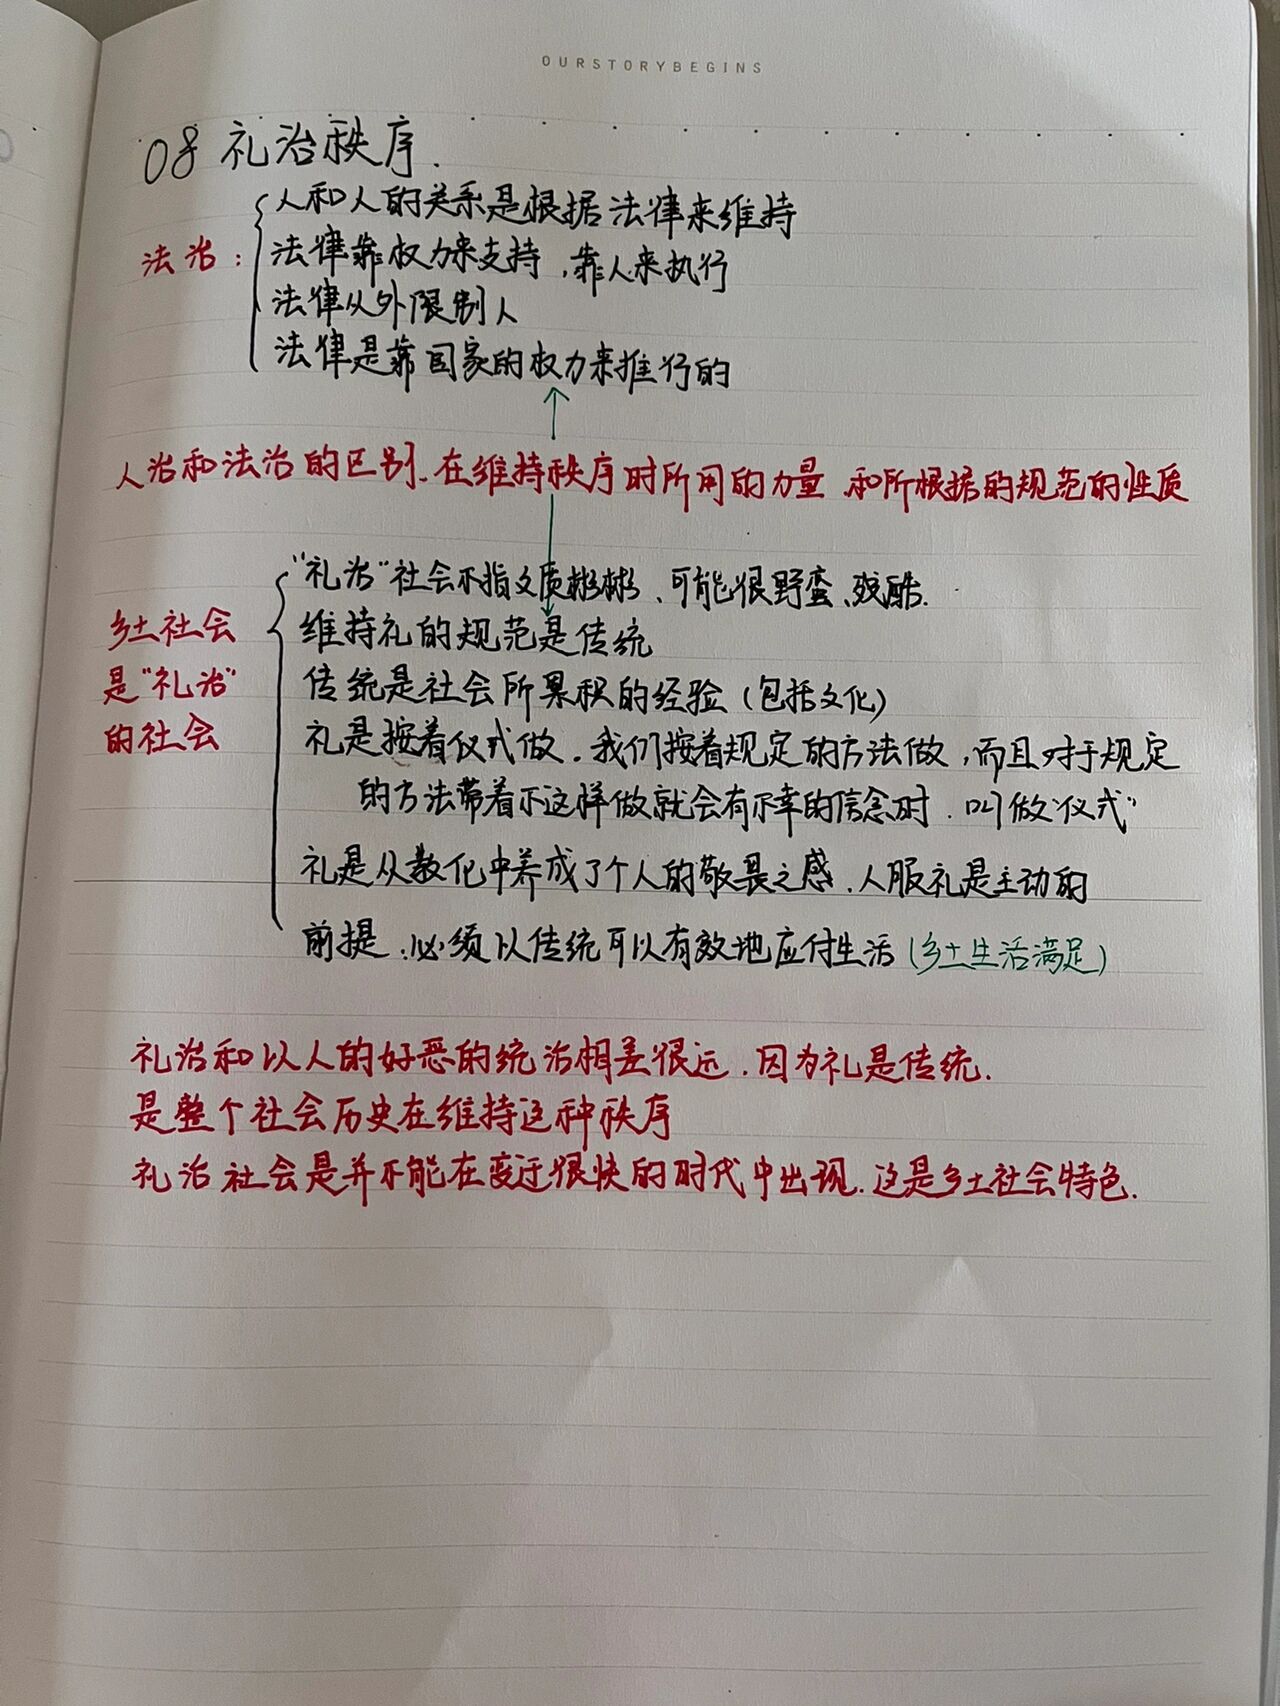 OURSTORYBEGINS
08 礼治秩序.
人和人的关系是根据法律来维持
法治：
法律靠权力来支持，靠人来执行
法律从外限制人
法律是靠国家的权力来推行的
人治和法治的区别、在维持秩序时所用的力量、和所根据的规范的性质
“礼治”社会不指文质彬彬、可能很野蛮、残酷.
乡土社会
是“礼治”
的社会
维持礼的规范是传统
传统是社会所累积的经验（包括文化）
礼是按着仪式做。我们按着规定的方法做，而且对于规定
的方法带着不这样做就会有不幸的信念时，叫做“仪式”
礼是从教化中养成了个人的敬畏之感、人服礼是主动的
前提：必须以传统可以有效地应付生活（乡土生活满足）
礼治和以人的好恶的统治相差很远、因为礼是传统.
是整个社会历史在维持这种秩序
礼治社会是并不能在变迁很快的时代中出现.这是乡土社会特色.